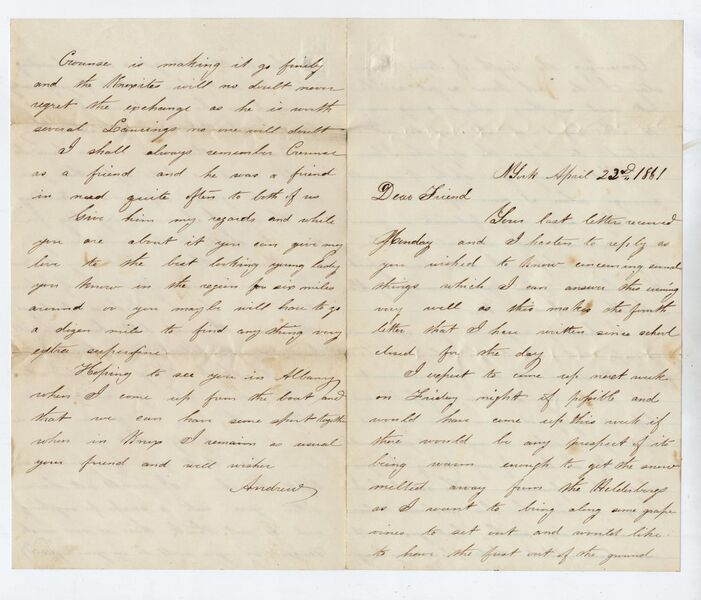 N York April 22nd, 1861
Dear Friend
Your last letter received
Monday and I hasten to reply as
you wished to know concerning several
things which I can answer this evening
very well as this makes the fourth
letter that I have written since school
closed for the day
I expect to come up next week
on Friday night if possible and
would have come up this week if
there would be any prospect of its
being warm enough to get the snow
melted away from the Helderbergs
as I want to bring along some grape
vines to set out and would like
to have the frost out of the ground
Crounse is making it go finely
and the Knoxites will no doubt never
regret the exchange as he is worth
several Lansings no one will doubt
I shall always remember Crounse
as a friend and he was a friend
in need quite often to both of us
Give him my regards and while
you are about it you can give my
love to the best looking young lady
you know in the region for six miles
around or you maybe will have to go
a dozen mile to find any thing very
extra superfine
Hoping to see you in Albany
when I come up from the boat and
that we can have some sport together
when in Knox I remain as usual
your friend and well wisher
Andrew